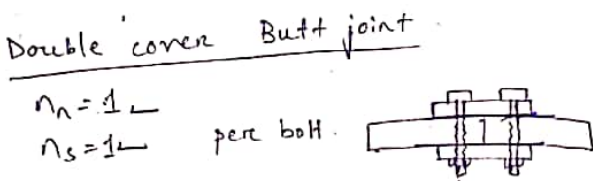 Double cover Butt joint
nn = 1
ns = 1 per bolt.